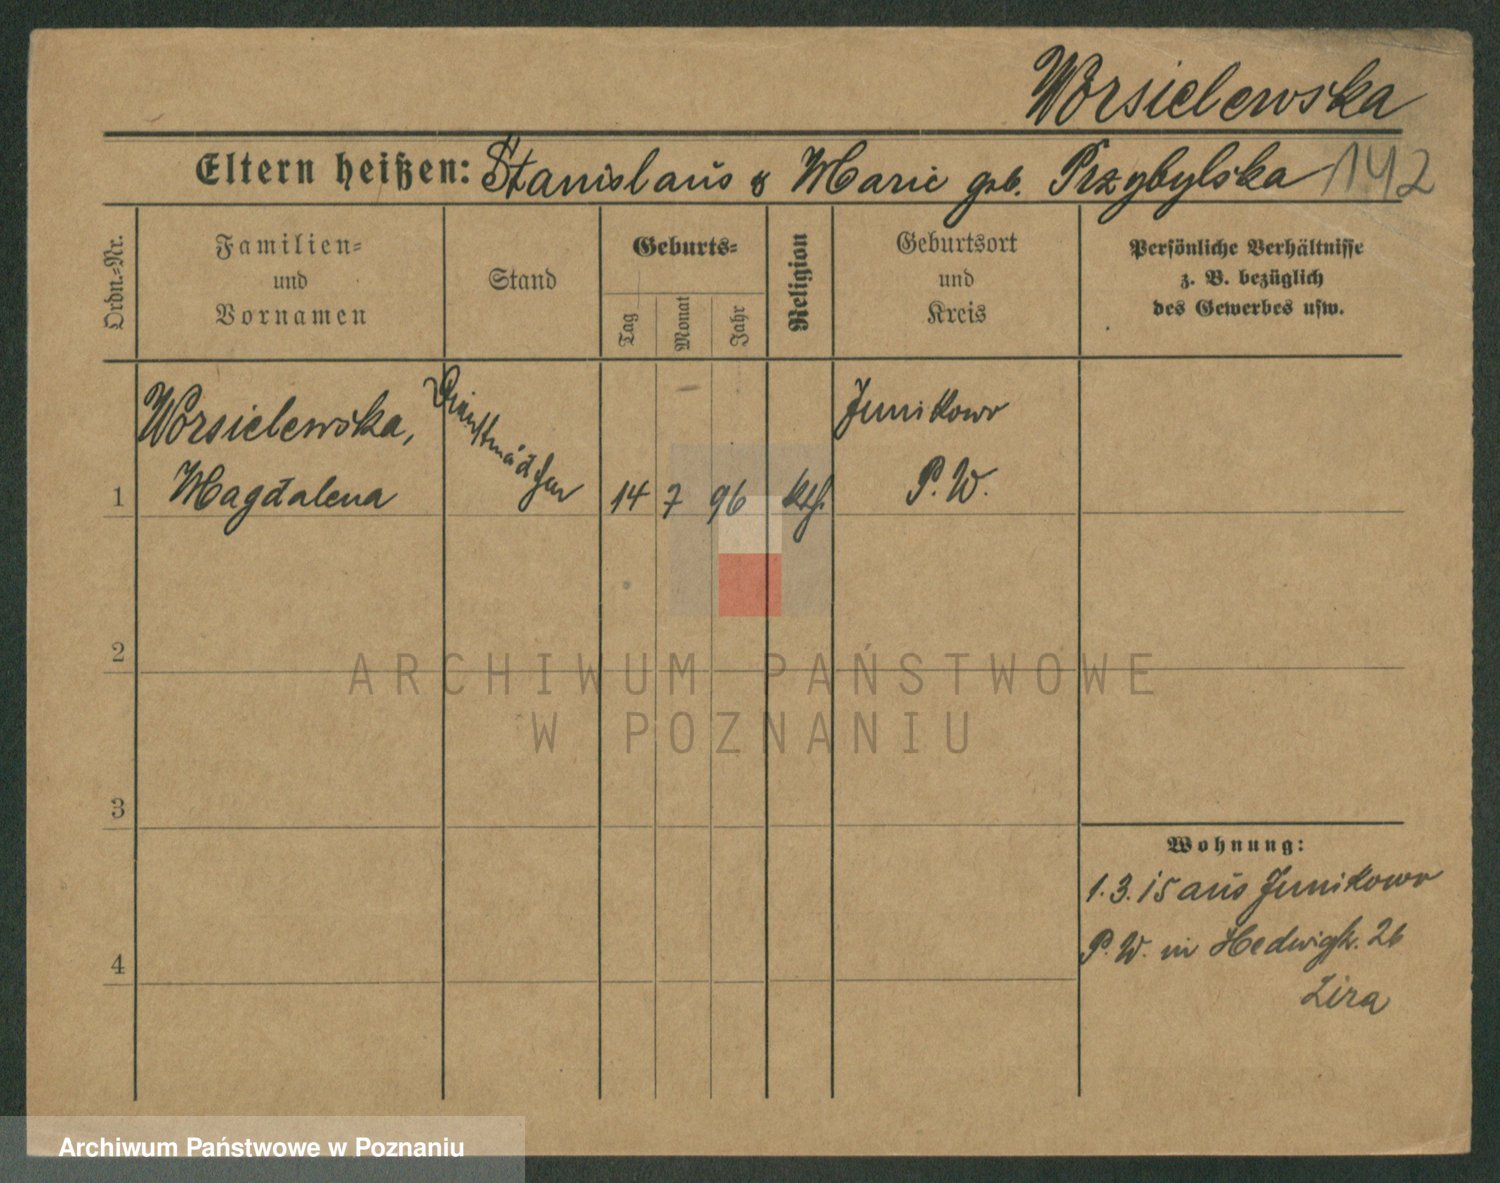 Worsielewska
Eltern heißen: Stanislaus & Marie geb. Przybylska 142
Ordn.-Nr.
Familien-
und
Vornamen
Stand
Geburts-
Tag
Monat
Jahr
Religion
Geburtsort
und
Kreis
Persönliche Verhältnisse
z. B. bezüglich
des Gewerbes usw.
Worsielewska,
Dienstmädchen
Junikowo
1 Magdalena 14 7 96 kth. P. W.
2
ARCHIWUM PAŃSTWOWE
W POZNANIU
3
Wohnung:
1.3.15 aus Junikowo
4
P. W. in 26
Zira
Archiwum Państwowe w Poznaniu